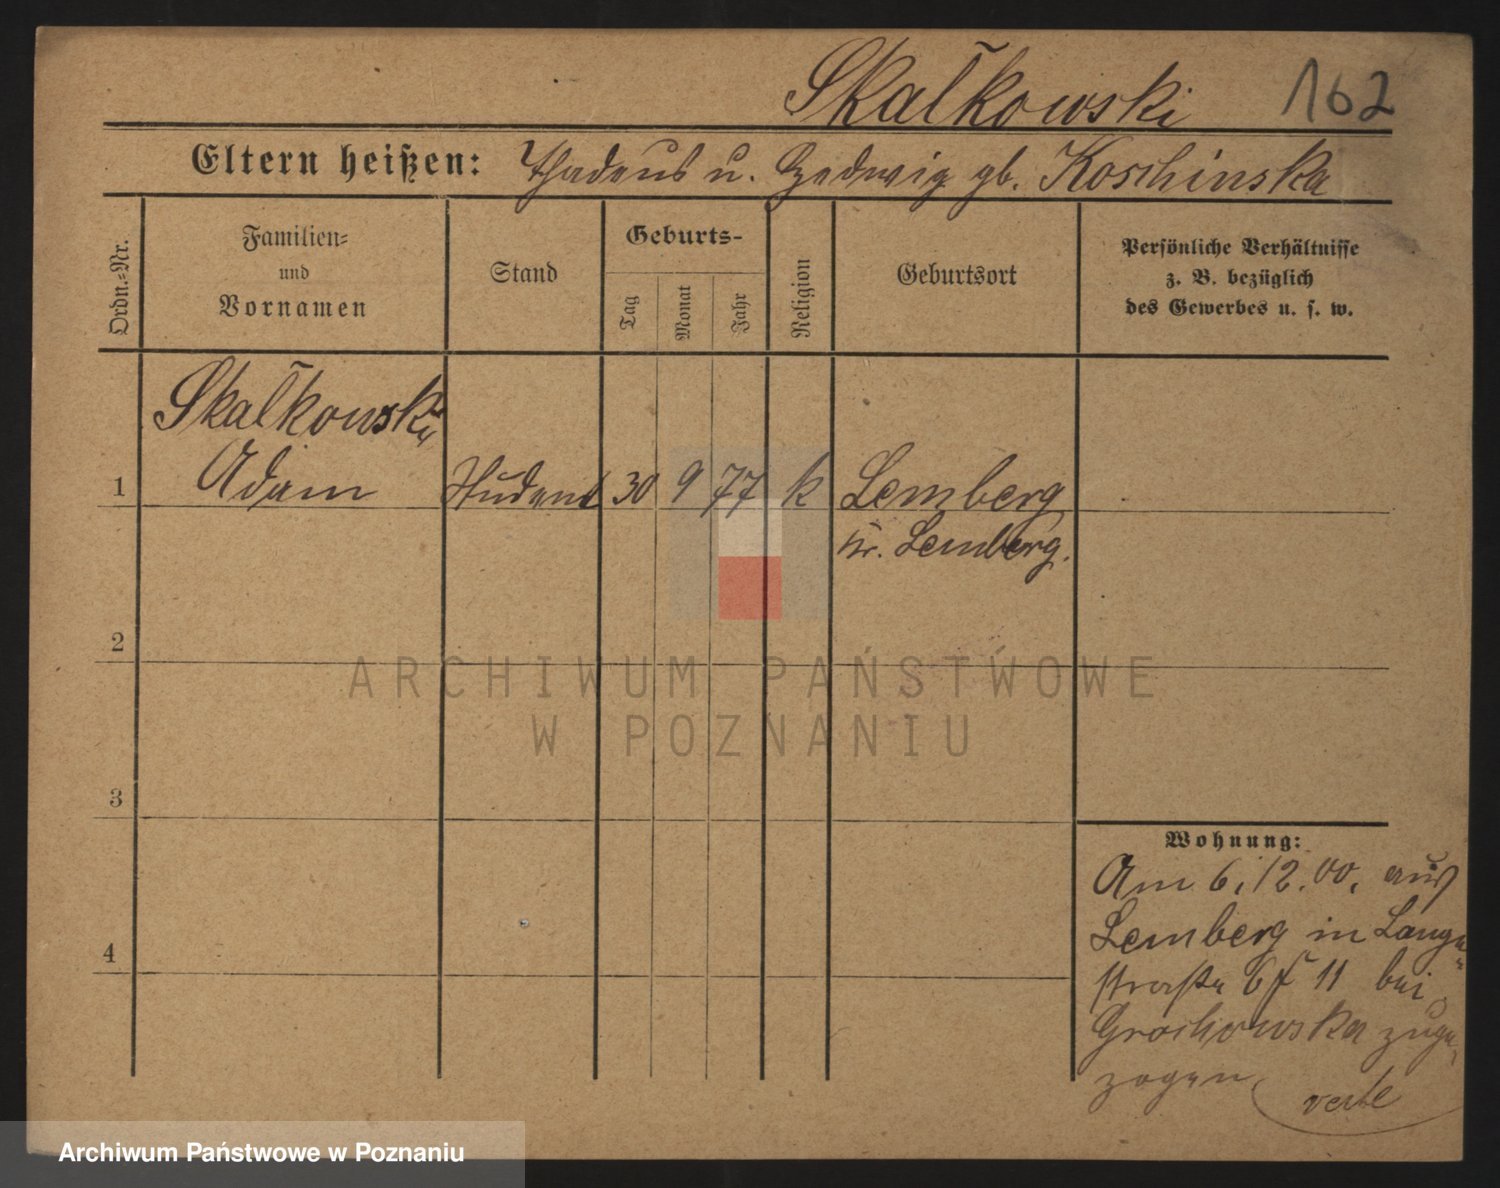 Skałkowski 162
Eltern heißen: Thadeus u. Hedwig gb. Koschinska
Ordn.-Nr.
Familien-
und
Vornamen
Stand
Geburts-
Tag
Monat
Jahr
Religion
Geburtsort
Persönliche Verhältnisse
z. B. bezüglich
des Gewerbes u. s. w.
Skałkowski
1 Adam Student 30 9 77 k Lemberg
Kr. Lemberg.
2
3
4
Wohnung:
Am 6.12.00. aus
Lemberg in Lange-
straße 11 bei
Grochowska zuge-
zogen
verte
ARCHIWUM PAŃSTWOWE
W POZNANIU
Archiwum Państwowe w Poznaniu